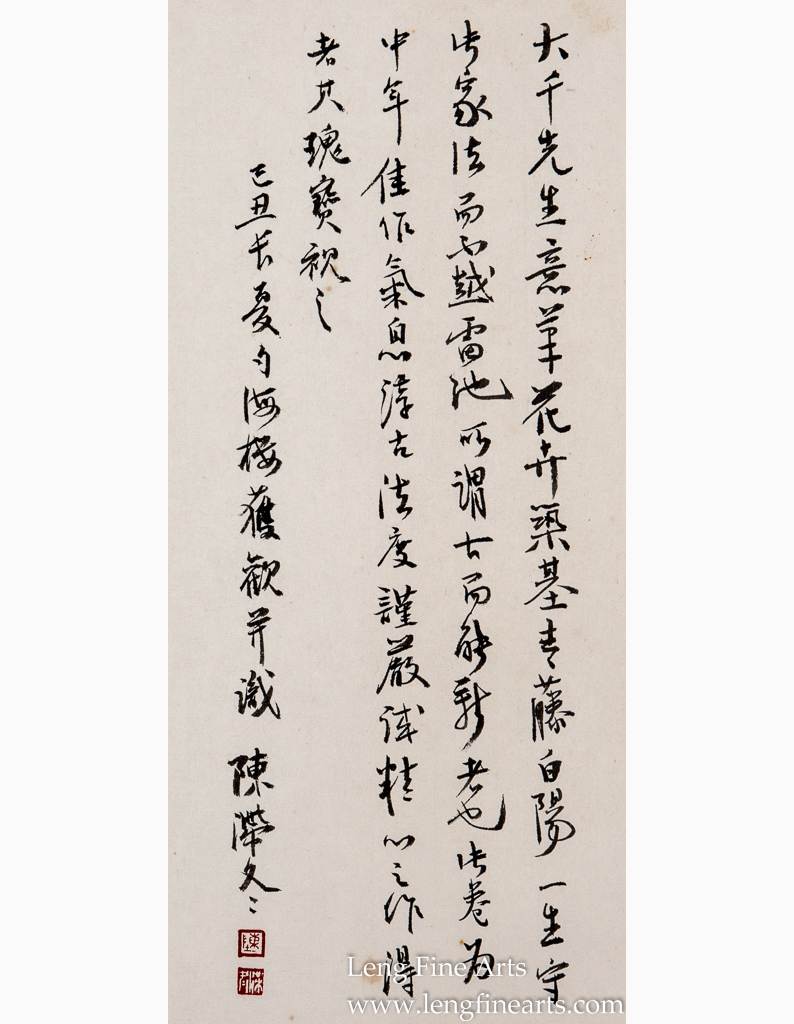 大千先生意筆花卉築基青藤白陽一生守
此家法而不越雷池所謂古而能新者也此卷為
中年佳作氣息淳古法度謹嚴誠精心之作得
者其瑰寶視之
己丑長夏於海樓獲觀并識 陳灨久
Leng Fine Arts
www.lengfinearts.com